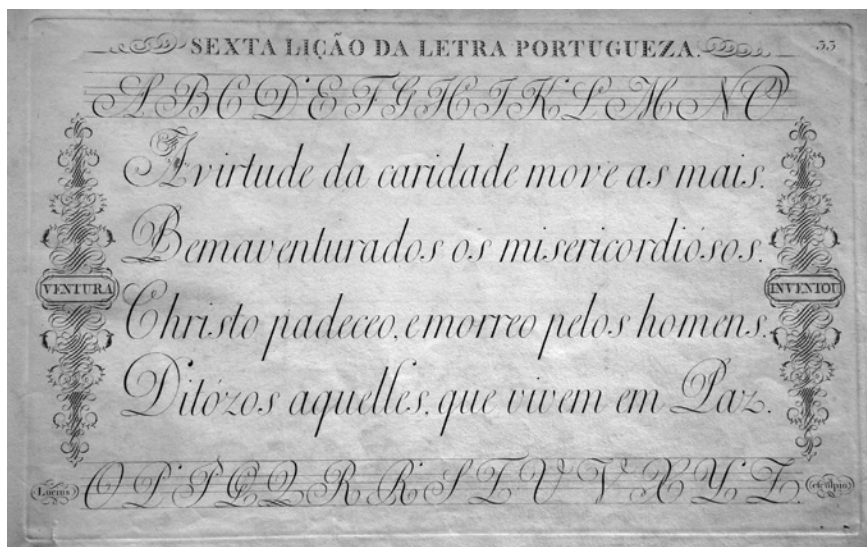 SEXTA LIÇÃO DA LETRA PORTUGUEZA.
33
A B C D E F G H I K L M N O
A virtude da caridade move as mais.
Bemaventurados os misericordiósos.
VENTURA
INVENTOU
Christo padeceo, e morreo pelos homens.
Ditózos aquelles, que vivem em Paz.
O P P Q Q R R S T U V X Y Z.
Lucius
esculpio